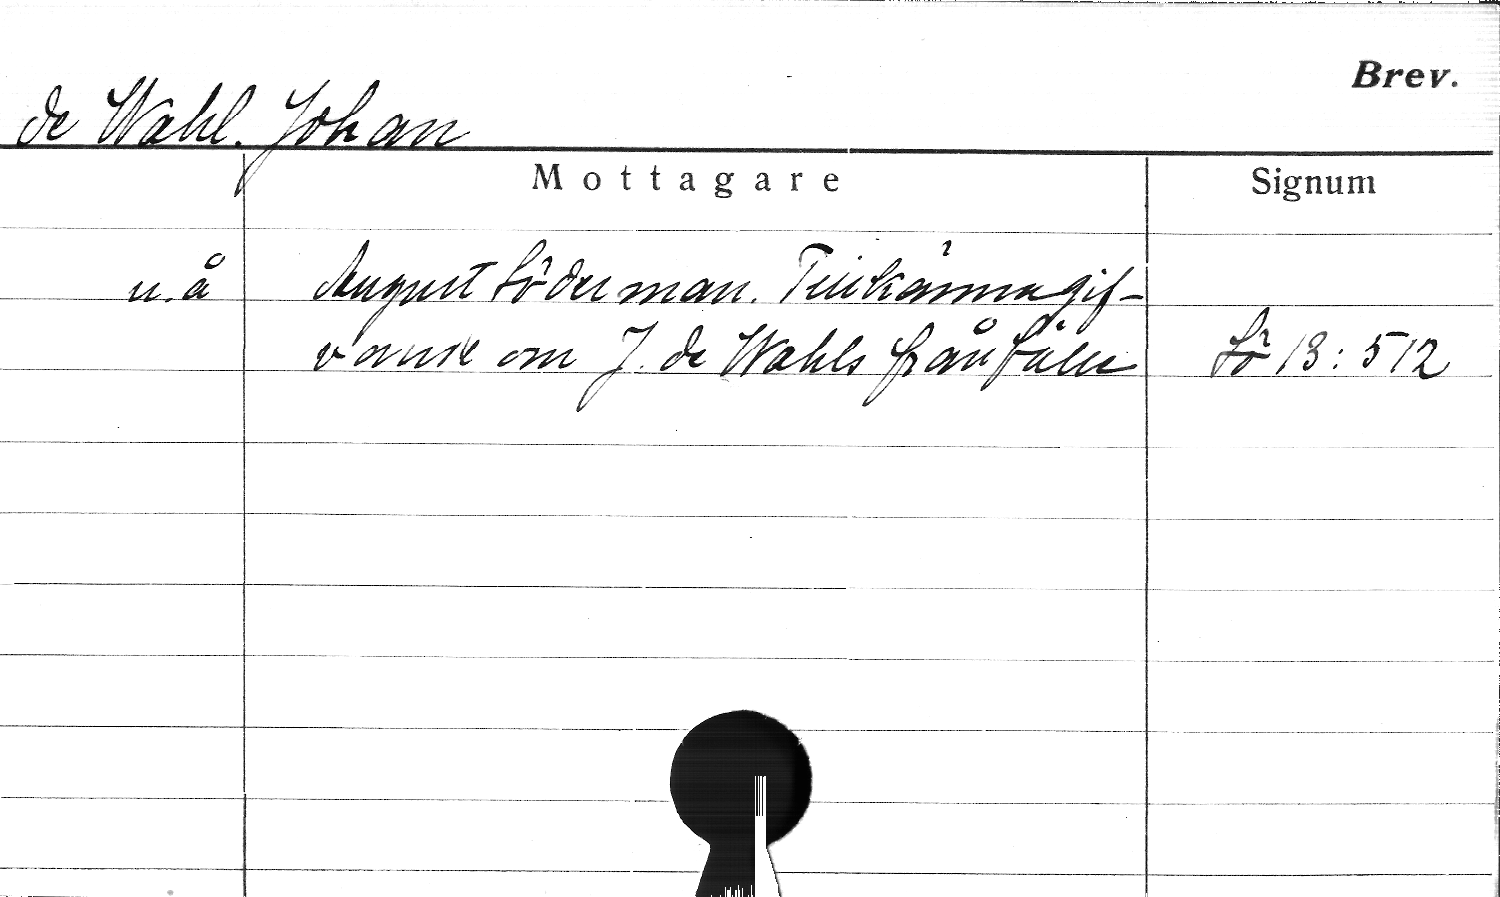 Brev.
de Wahl. Johan
Mottagare
Signum
u.å
August Söderman. Tillkännagif-
vande om J. de Wahls frånfälle
Sö 13: 512